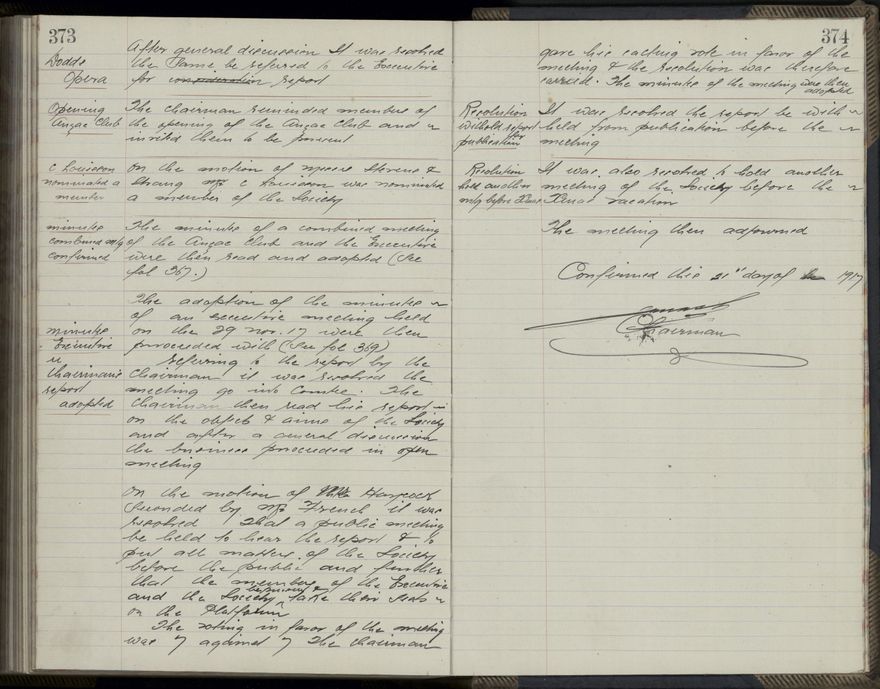 373
Dodds
Opera
After general discussion It was resolved
the same be referred to the Executive
for consideration report
Opening
Anzac Club
The Chairman reminded members of
the opening of the Anzac Club and
invited them to be present
C Louisson
nominated a
member
On the motion of Messrs Stevens &
Strang Mr C Louisson was nominated
a member of the Society
minutes
combined mtg
confirmed
The minutes of a combined meeting
of the Anzac Club and the Executive
were then read and adopted (See
fol 367.)
minutes
Executive
Chairmans
report
adopted
The adoption of the minutes
of an executive meeting held
on the 29 Nov. 17 were then
proceeded with (See fol 369)
Referring to the report by the
Chairman it was resolved the
meeting go into Comtee. The
Chairman then read his report
on the objects & aims of the Society
and after a general discussion
the business proceeded in open
meeting
On the motion of Haycock
seconded by Mr French it was
resolved That a public meeting
be held to hear the report & to
put all matters of the Society
before the public and further
that the members of the Executive
and the Society take their seats
on the Platform
The voting in favor of the meeting
was 7 against 7 The Chairman
374
gave his casting vote in favor of the
meeting & the resolution was therefore
carried. The minutes of the meeting were then
adopted
Resolution
withold report
for
publication
It was resolved the report be with
held from publication before the
meeting
Resolution
hold another
mtg before Xmas
It was also resolved to hold another
meeting of the Society before the
Xmas vacation
The meeting then adjourned
Confirmed this 21st day of 1917
Chairman